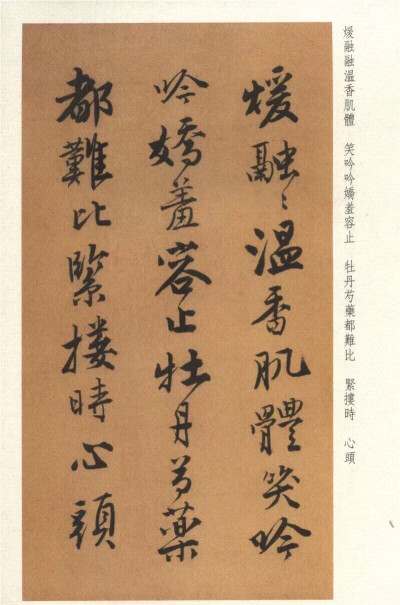 煖融融溫香肌體　笑吟吟嬌羞容止　牡丹芍藥都難比　緊摟時　心頭
煖融〻溫香肌體笑吟
吟嬌羞容止牡丹芍藥
都難比緊摟時心頭